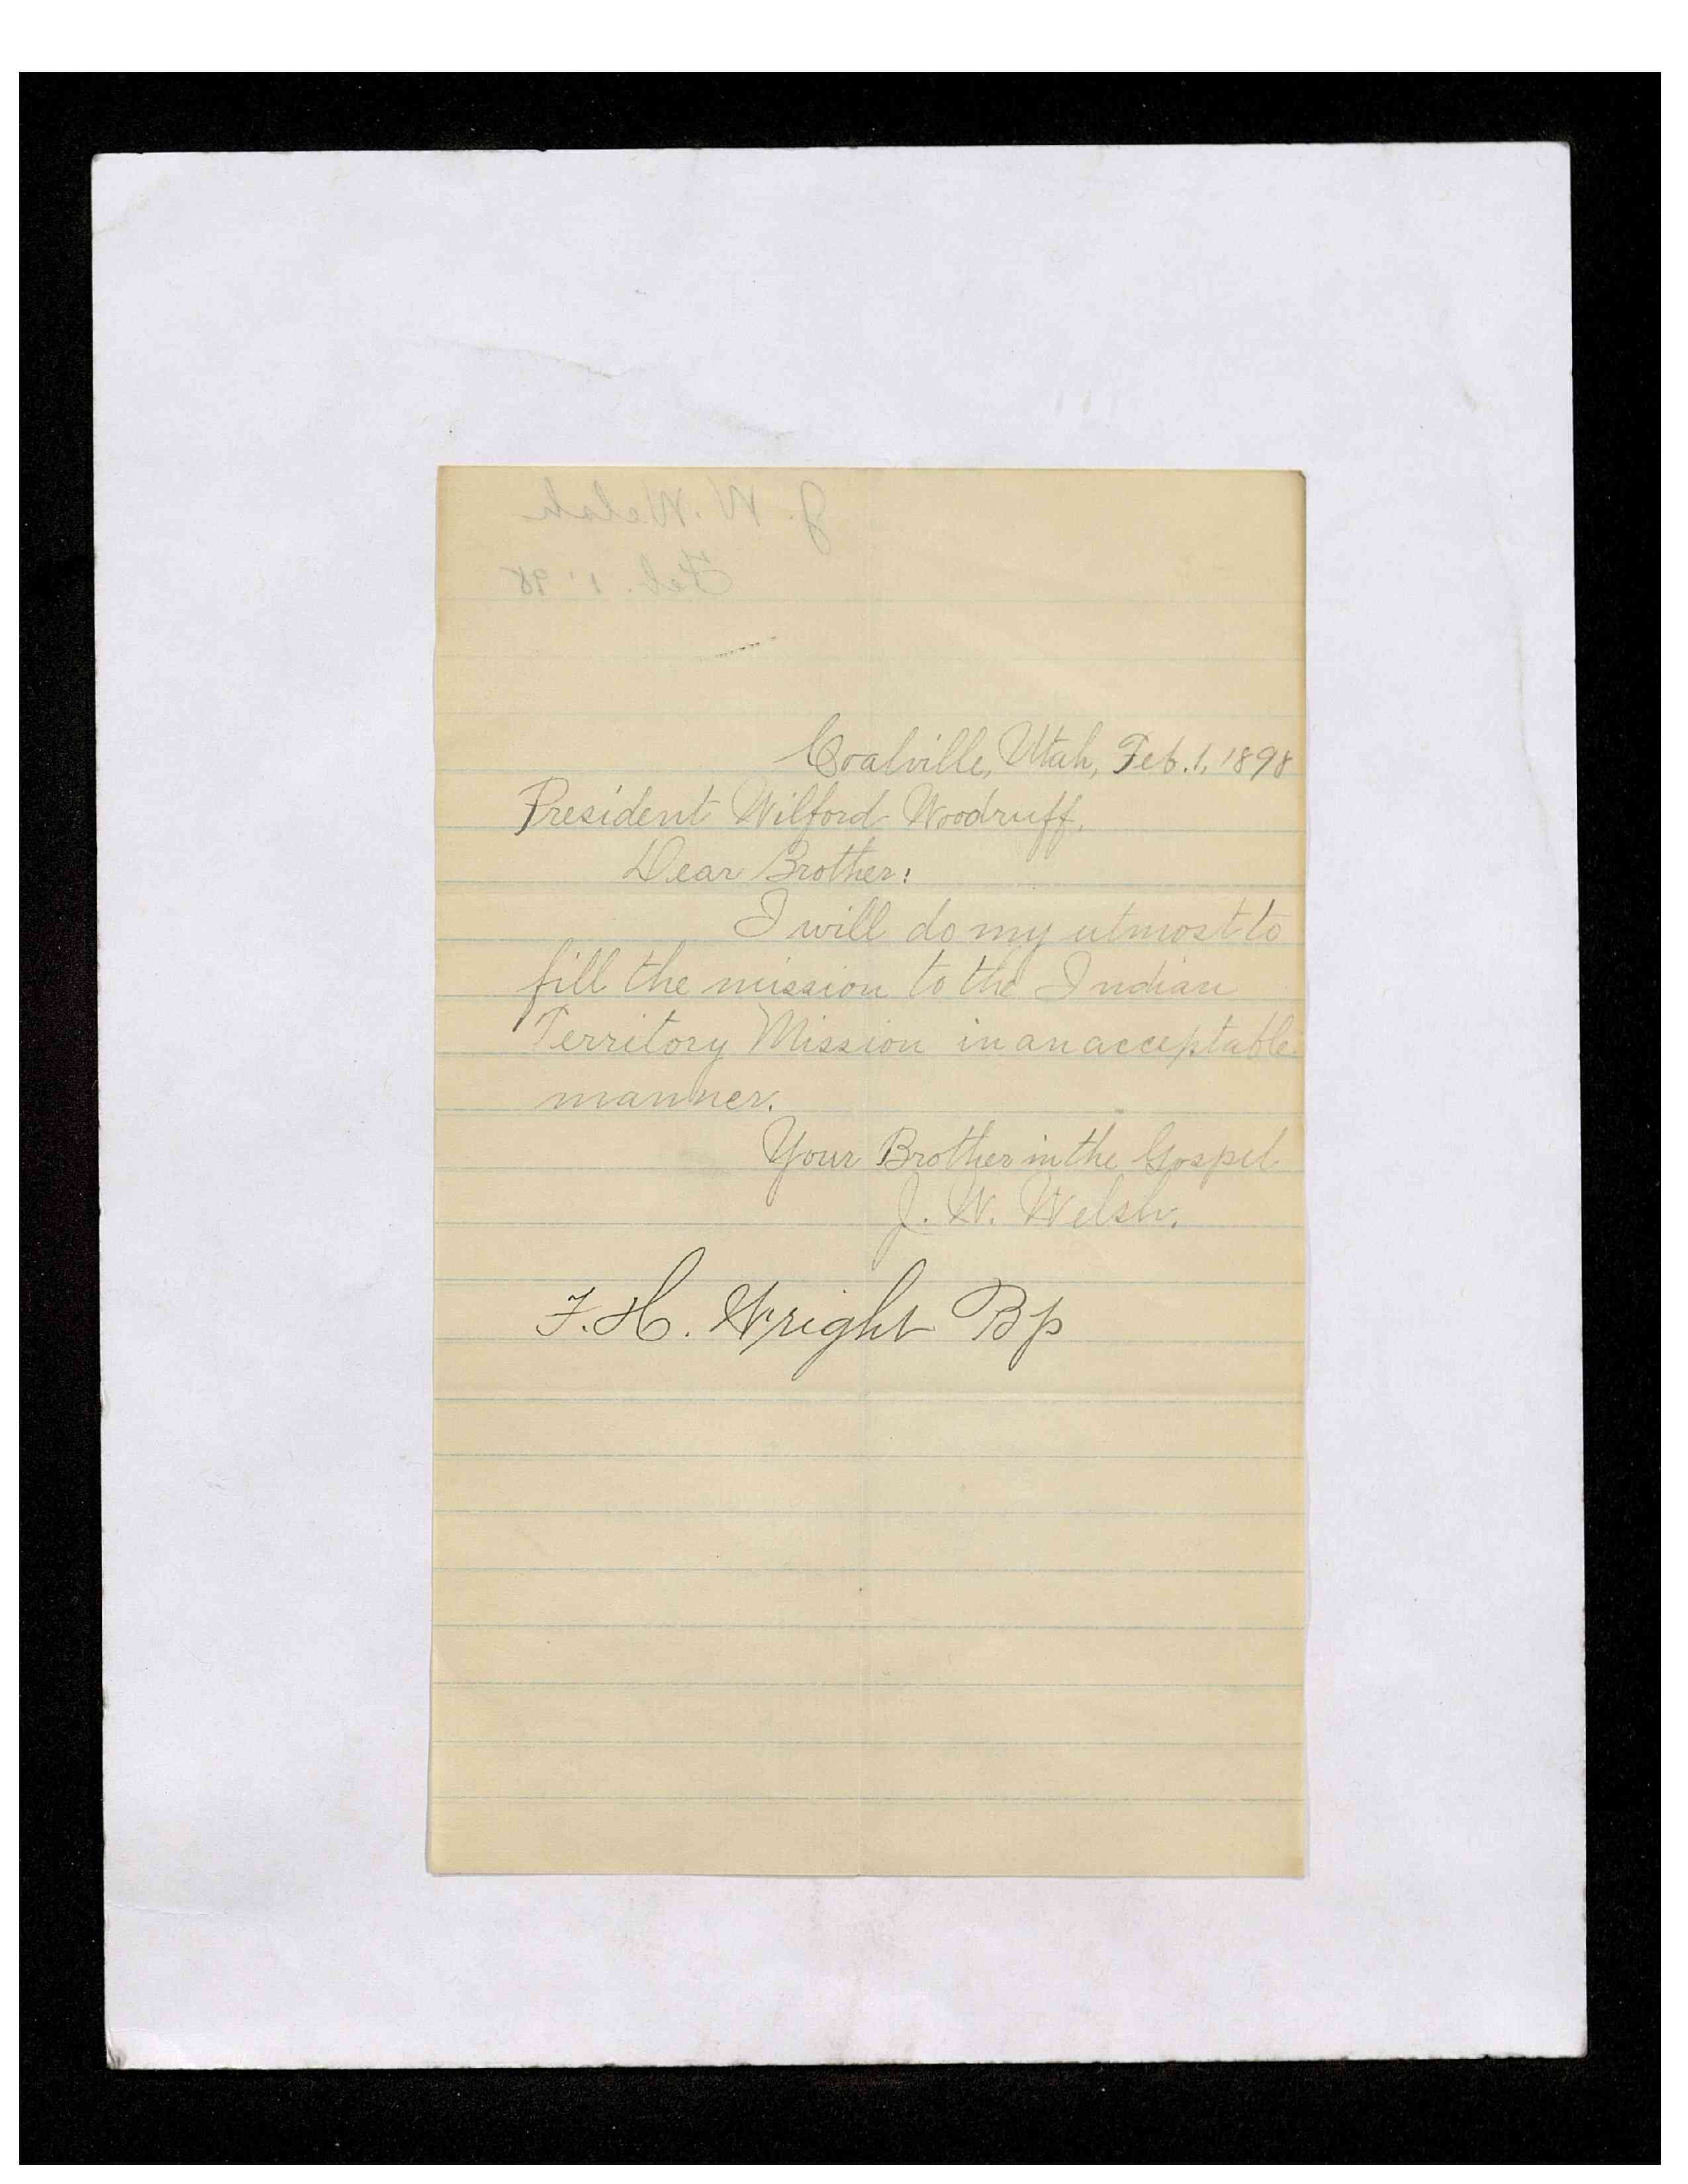 J. W. Welsh
Feb. 1 '98
Coalville, Utah, Feb. 1, 1898
President Wilford Woodruff.
Dear Brother:
I will do my utmost to
fill the mission to the Indian
Territory Mission in an acceptable
manner.
Your Brother in the Gospel
J. W. Welsh.
F. H. Wright Bp